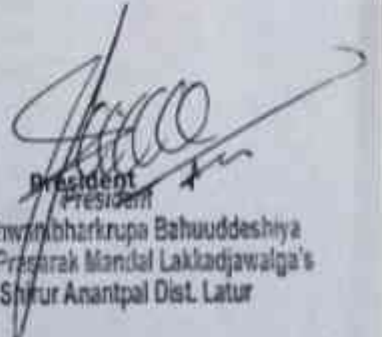 President
President
Bahuuddeshiya
Mandal Lakkadjawalga's
Shirur Anantpal Dist. Latur